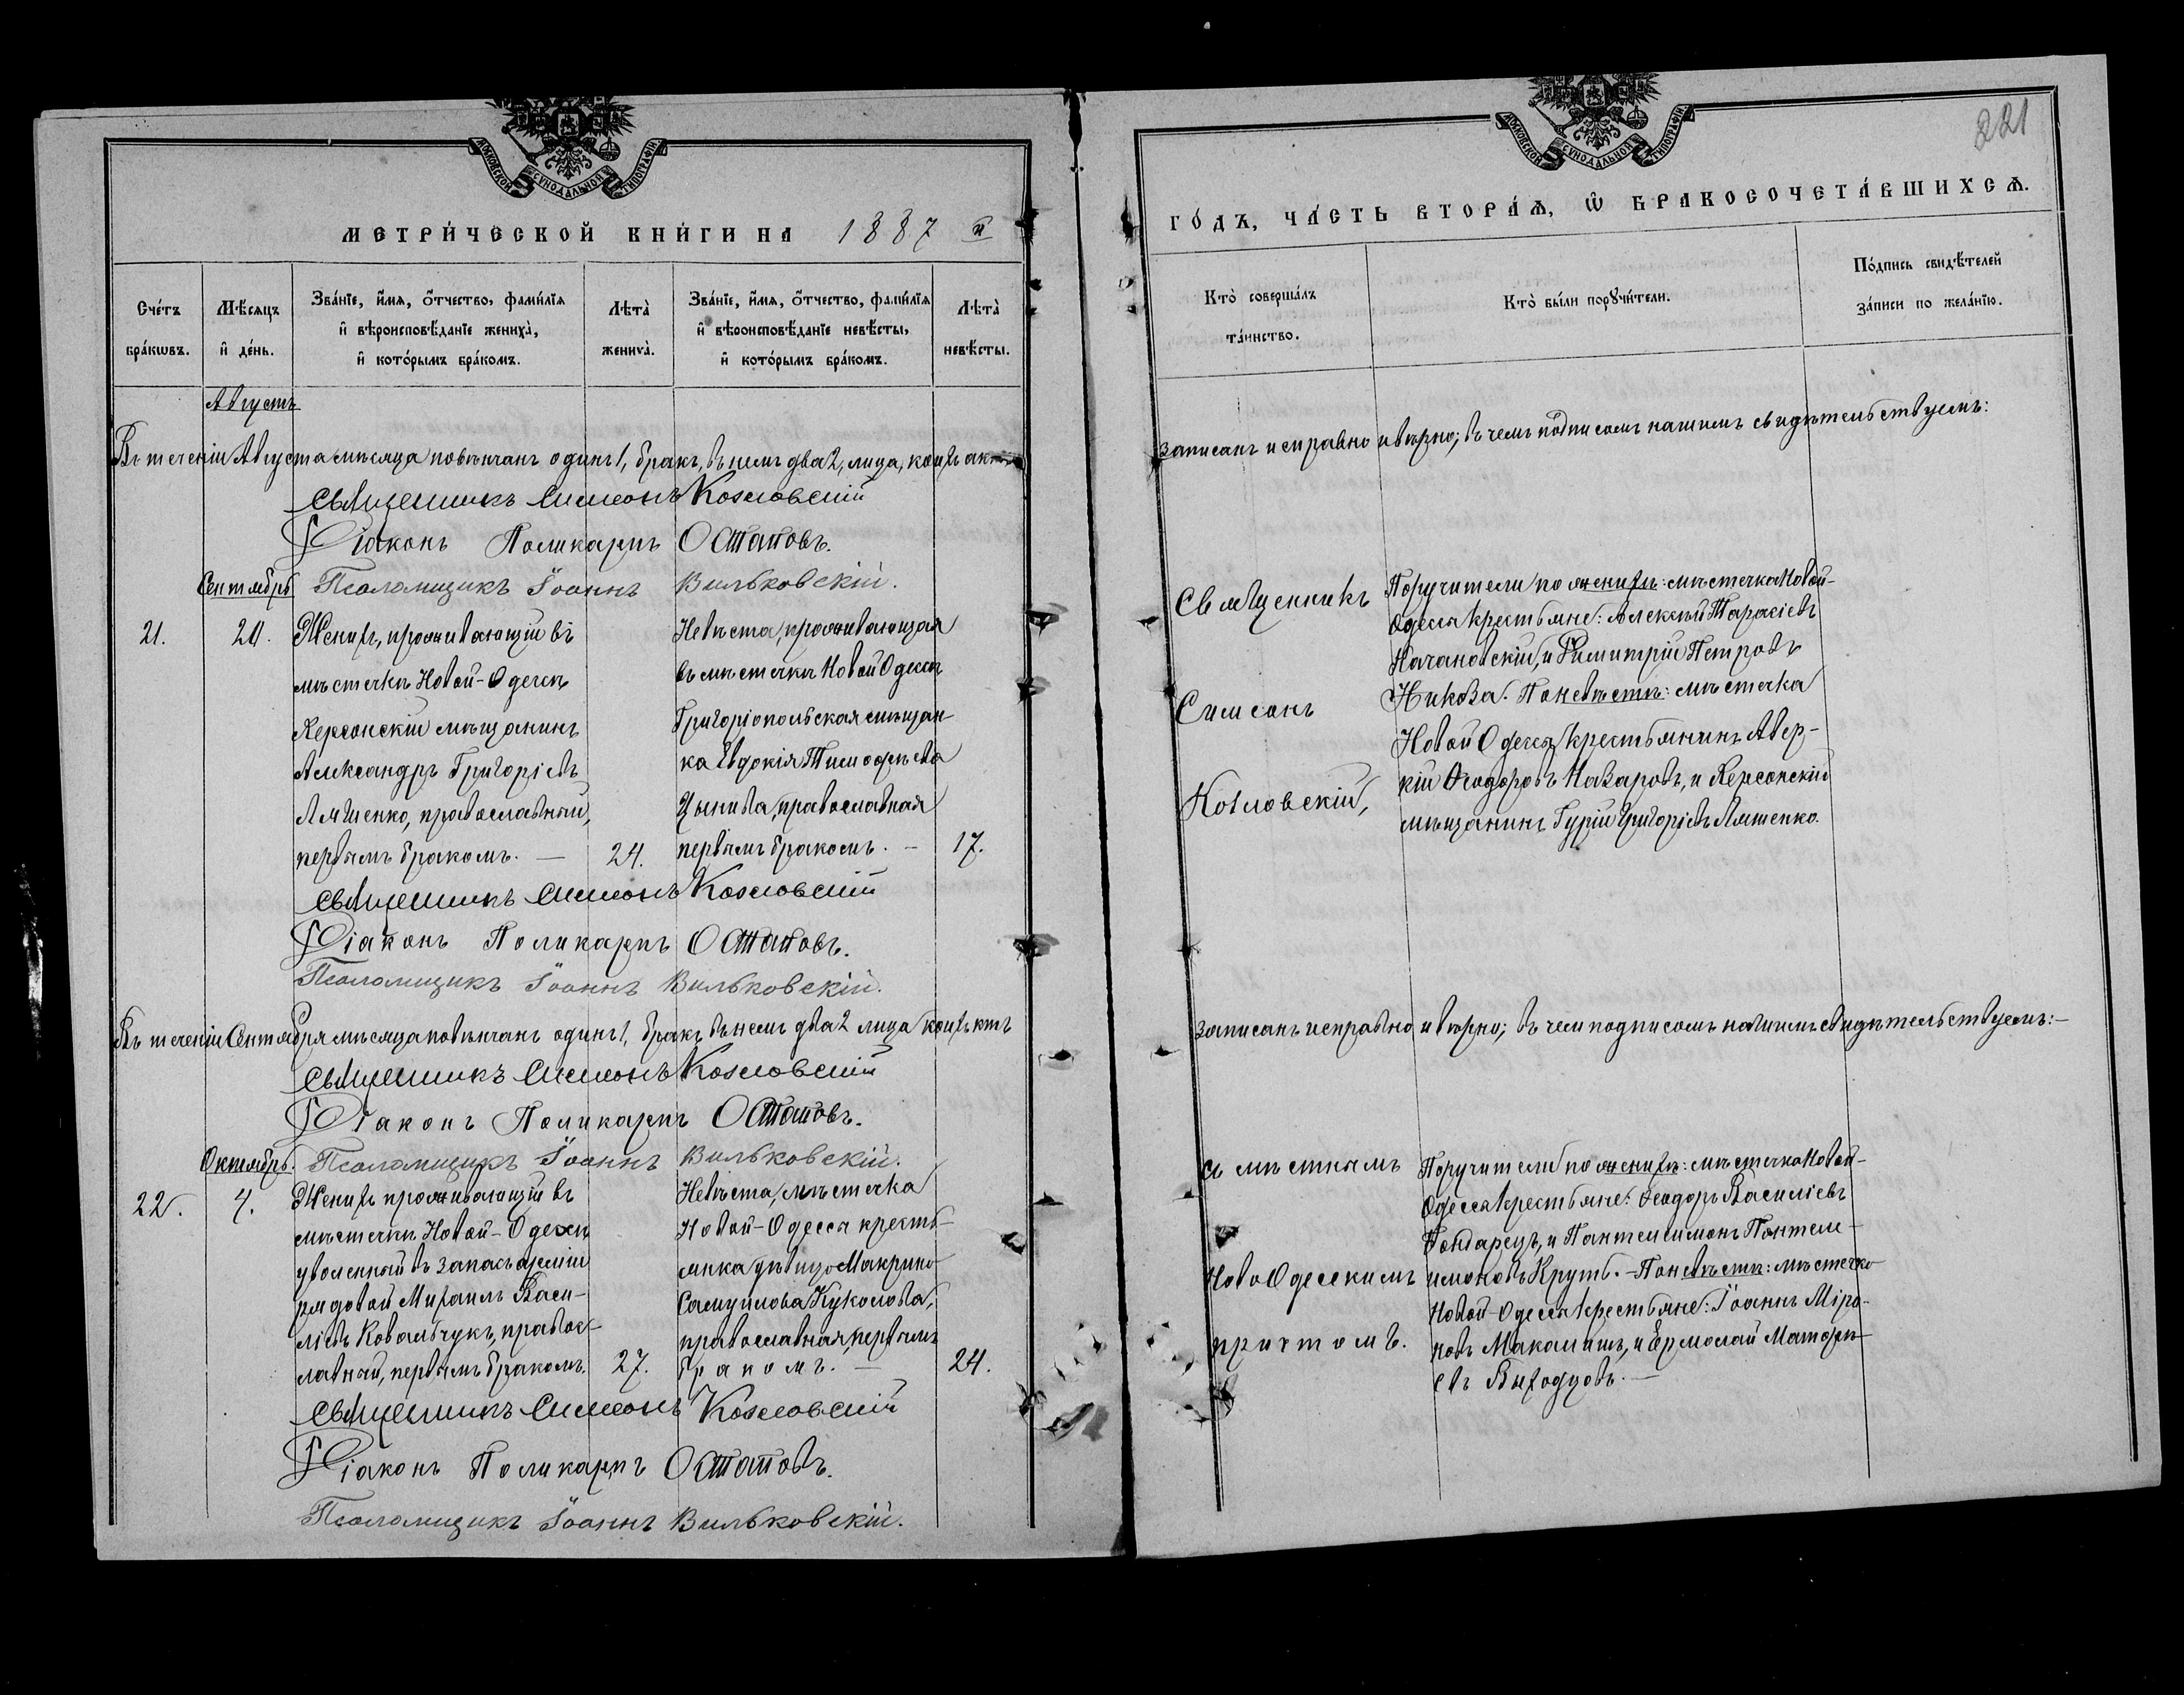 МОСКОВСКОЙ СУНОДАЛЬНОЙ ТИПОГРАФІИ
МЕТРИ́ЧЕСКОЙ КНИ́ГИ НА 1887 й
Сче́тъ бра́кѡвъ.
Мѣ́сяцъ и҆ де́нь.
Зва́нїе, и҆́мя, ѻ҆́тчество, фами́лїя и҆ вѣроисповѣ́данїе жениха̀, и҆ кото́рымъ бра́комъ.
Лѣта̀ жениха̀.
Зва́нїе, и҆́мя, ѻ҆́тчество, фами́лїя и҆ вѣроисповѣ́данїе невѣ́сты, и҆ кото́рымъ бра́комъ.
Лѣта̀ невѣ́сты.
Августъ
Въ теченіи Августа мѣсяца повѣнчанъ одинъ 1, бракъ, въ немъ два 2, лица, коихъ актъ
Священникъ Симеонъ Козловскій
Діаконъ Поликарпъ Остаповъ.
Псаломщикъ Іоаннъ Вильковскій.
Сентябрь
21.
20.
Женихъ, проживающій въ
мѣстечкѣ Новой-Одессѣ
Херсонскій мѣщанинъ
Александръ Григоріевъ
Ляшенко, православный,
первымъ бракомъ. —
24.
Невѣста, проживающая
въ мѣстечкѣ Новой Одессѣ
Григоріопольская мѣщан-
ка Евдокія Тимофѣева
православная
первымъ бракомъ. —
17.
Священникъ Симеонъ Козловскій
Діаконъ Поликарпъ Остаповъ.
Псаломщикъ Іоаннъ Вильковскій.
Въ теченіи Сентября мѣсяца повѣнчанъ одинъ 1, бракъ, въ немъ два 2 лица коихъ актъ
Священникъ Симеонъ Козловскій
Діаконъ Поликарпъ Остаповъ.
Псаломщикъ Іоаннъ Вильковскій.
Октябрь.
22.
4.
Женихъ проживающій въ
мѣстечкѣ Новой-Одессѣ
уволенный въ запасъ арміи
рядовой Михаилъ Васи-
ліевъ Ковальчукъ, правос-
лавный, первымъ бракомъ.
27.
Невѣста, мѣстечка
Новой-Одесса кресть-
янка дѣвица Макрина
Самуилова Куколова,
православная, первымъ
бракомъ. —
24.
Священникъ Симеонъ Козловскій
Діаконъ Поликарпъ Остаповъ.
Псаломщикъ Іоаннъ Вильковскій.
221
МОСКОВСКОЙ СУНОДАЛЬНОЙ ТИПОГРАФІИ
ГО́ДЪ, ЧА́СТЬ ВТОРА́Ѧ, Ѽ БРАКОСОЧЕТА́ВШИХСѦ.
Кто̀ соверша́лъ та́инство.
Кто̀ бы́ли порꙋчи́тели.
По́дпись свидѣ́телей за́писи по жела́нїю.
записанъ исправно и вѣрно; въ чемъ подписомъ нашимъ свидѣтельствуемъ:
Священникъ
Симеонъ
Козловскій,
Поручители по женихѣ: мѣстечка Новой-
Одесса крестьяне: Алексѣй Тарасіевъ
Качановскій, и Димитрій Петровъ
По невѣстѣ: мѣстечка
Новой Одесса крестьянинъ Авер-
кій Феодоровъ Назаровъ, и Херсонскій
мѣщанинъ Гурій Григоріевъ Ляшенко.
записанъ исправно и вѣрно; въ чем подписомъ нашимъ свидѣтельствуемъ: —
съ мѣстнымъ
Ново Одесскимъ
причтомъ.
Поручители по женихѣ: мѣстечка Новой-
Одесса крестьяне: Феодоръ Василіевъ
Гондарецъ, и Пантелеимонъ Пантеле-
имоновъ Круть. — По невѣстѣ: мѣстечка
Новой-Одесса крестьяне: Іоаннъ Міро-
новъ и Ермолай Матфѣ-
евъ Выходцовъ. —